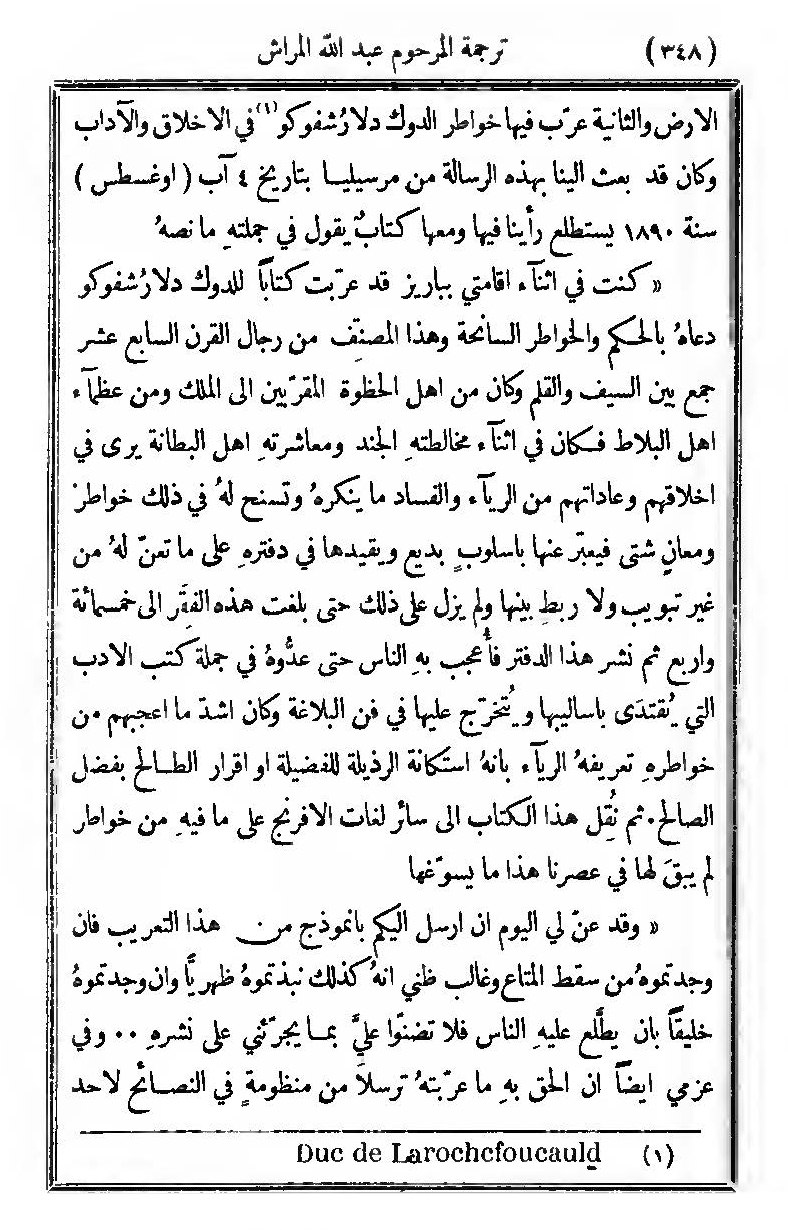 (٣٤٨) ترجمة المرحوم عبد الله المراش
الارض والثانية عرّب فيها خواطر الدوك دلارُشفوكو(١) في الاخلاق والآداب
وكان قد بعث الينا بهذه الرسالة من مرسيليا بتاريخ ٤ آب (اوغسطس)
سنة ١٨٩٠ يستطلع رأينا فيها ومعها كتابٌ يقول في جملتهِ ما نصهُ
« كنت في اثنآء اقامتي بباريز قد عرّبت كتاباً للدوك دلارُشفوكو
دعاهُ بالحكم والخواطر السانحة وهذا المصنِّف من رجال القرن السابع عشر
جمع بين السيف والقلم وكان من اهل الحظوة المقرّبين الى الملك ومن عظمآء
اهل البلاط فكان في اثنآء مخالطتهِ الجند ومعاشرتهِ اهل البطانة يرى في
اخلاقهم وعاداتهم من الريآء والفساد ما ينكرهُ وتسنح لهُ في ذلك خواطرُ
ومعانٍ شتى فيعبّر عنها باسلوبٍ بديع ويقيدها في دفترهِ على ما تعنّ لهُ من
غير تبويب ولا ربطٍ بينها ولم يزل على ذلك حتى بلغت هذه الفِقَر الى خمسمائة
واربع ثم نشر هذا الدفتر فأُعجب بهِ الناس حتى عدُّوهُ في جملة كتب الادب
التي يُقتدَى باساليبها ويُتخرّج عليها في فن البلاغة وكان اشدّ ما اعجبهم من
خواطرهِ تعريفهُ الريآء بانهُ استكانة الرذيلة للفضيلة او اقرار الطالح بفضل
الصالح. ثم نُقِل هذا الكتاب الى سائر لغات الافرنج على ما فيهِ من خواطر
لم يبقَ لها في عصرنا هذا ما يسوّغها
« وقد عنّ لي اليوم ان ارسل اليكم بانموذج من هذا التعريب فان
وجدتموهُ من سقط المتاع وغالب ظني انهُ كذلك نبذتموهُ ظهريًّا وان وجدتموهُ
خليقاً بان يطَّلع عليهِ الناس فلا تضنّوا عليَّ بما يجرّئني على نشرهِ ٠٠ وفي
عزمي ايضاً ان الحق بهِ ما عرّبتهُ ترسلاً من منظومةٍ في النصائح لاحد
(١) Duc de Larochefoucauld